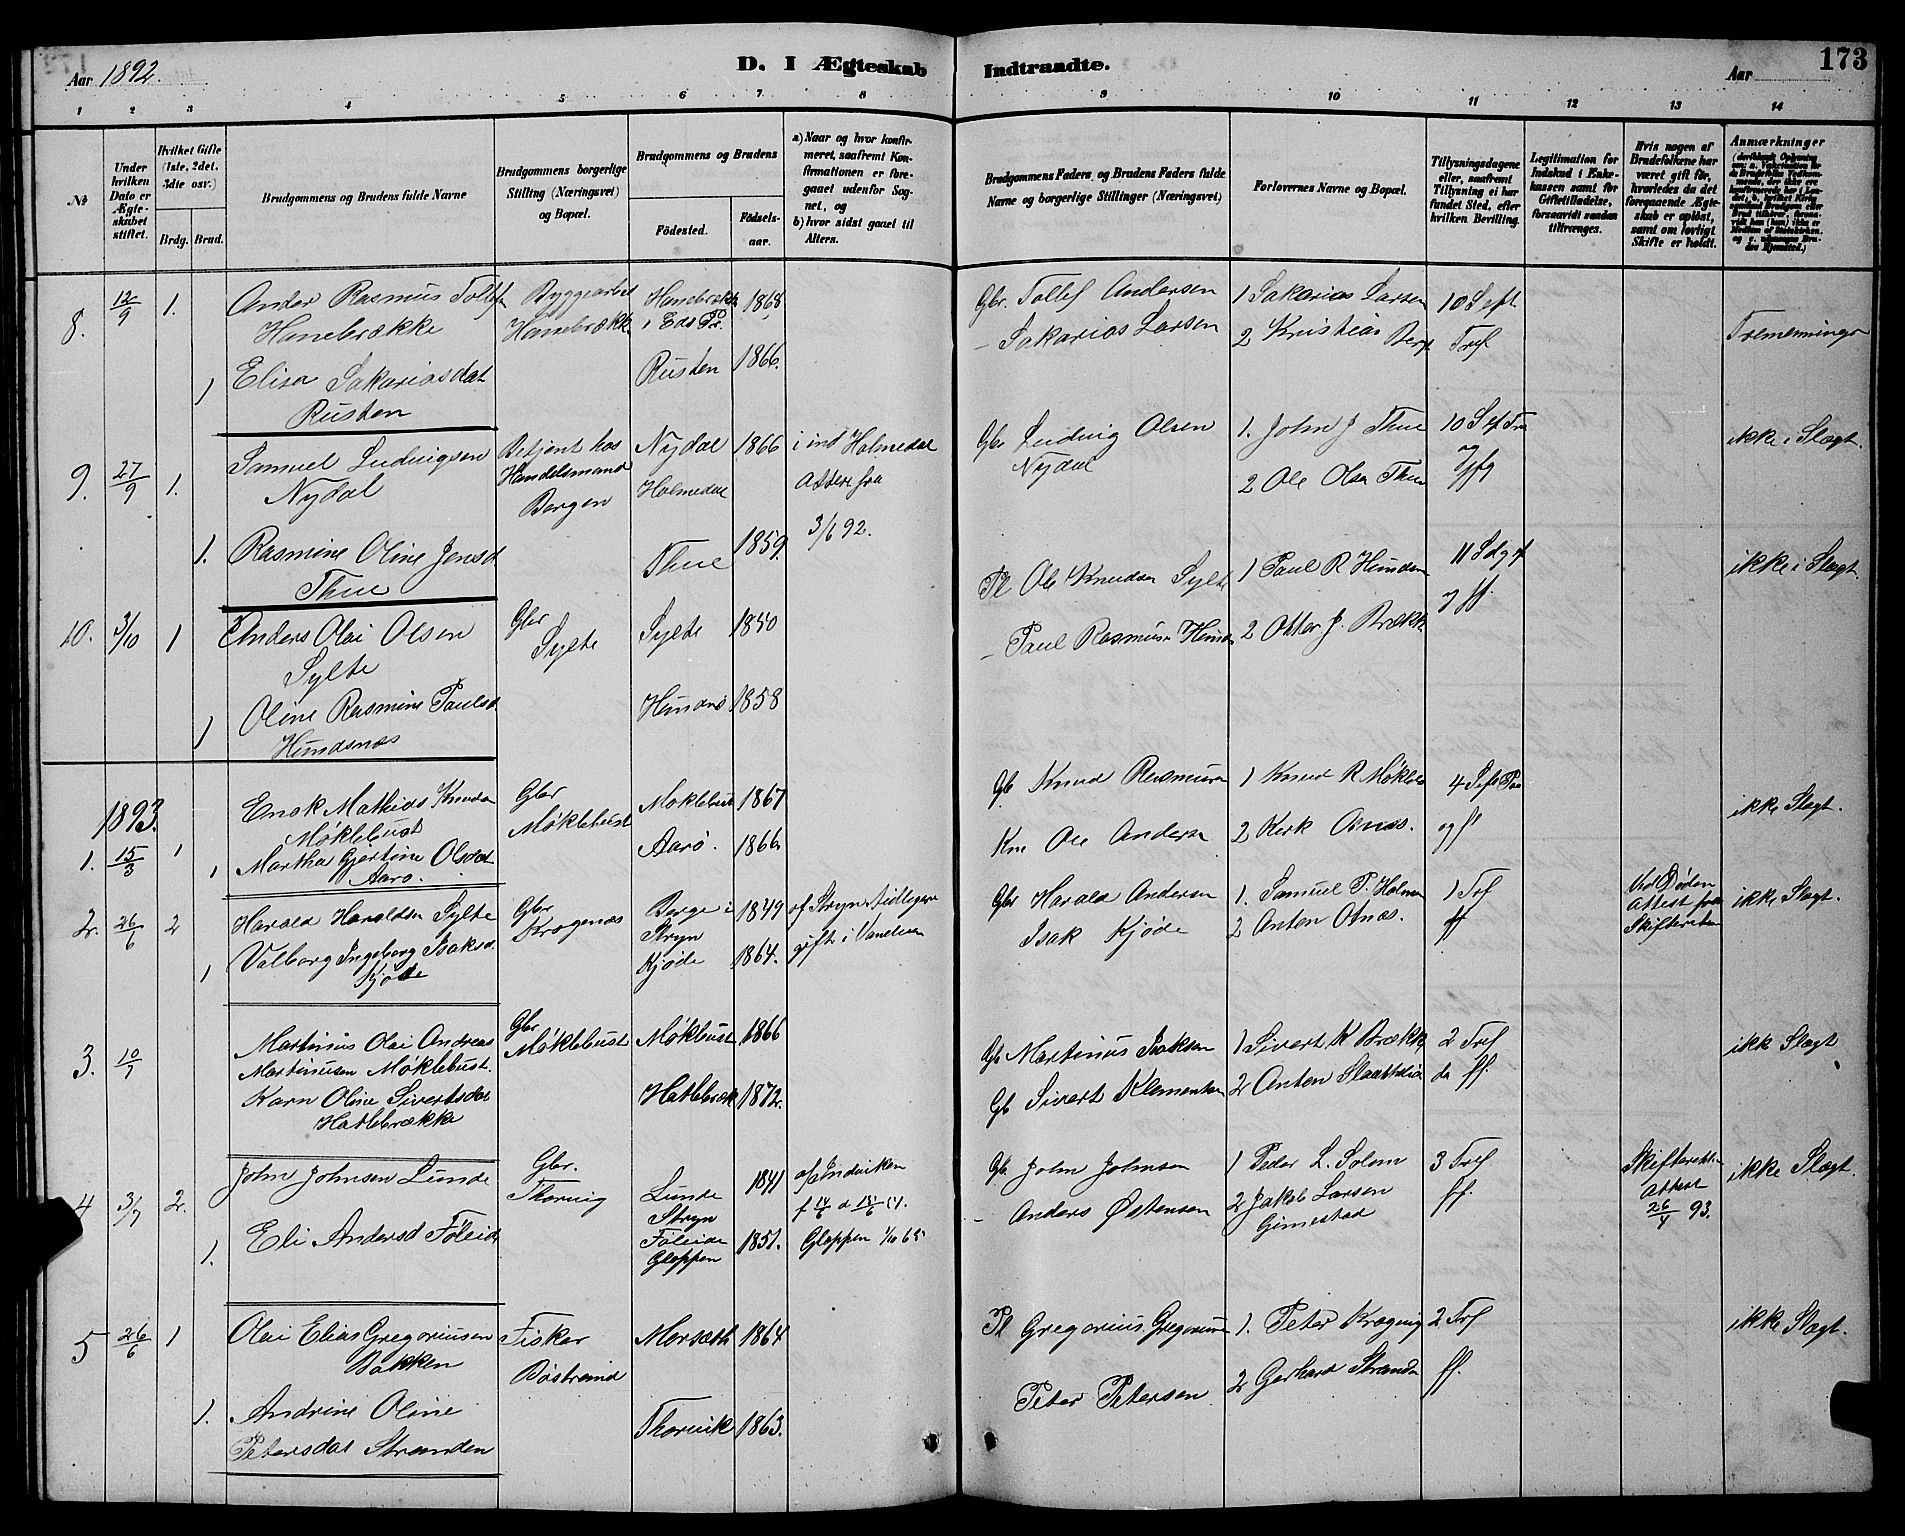 Aar 1892.
D. I Ægteskab Indtraadte.
Aar
173
1 2 3 4 5 6 7 8 9 10 11 12 13 14
№
Under hvilken Dato er Ægteskabet stiftet.
Hvilket Gifte (1ste, 2det, 3die osv.)
Brdg. Brud.
Brudgommens og Brudens fulde Navne
Brudgommens borgerlige Stilling (Næringsvei) og Bopæl.
Brudgommens og Brudens
Fødested.
Fødselsaar.
a) Naar og hvor konfirmeret, saafremt Konfirmationen er foregaaet udenfor Sognet, og
b) hvor sidst gaaet til Alters.
Brudgommens Faders, og Brudens Faders fulde Navne og borgerlige Stillinger (Næringsvei)
Forlovernes Navne og Bopæl.
Tillysningsdagene eller, saafremt Tillysning ei har fundet Sted, efter hvilken Bevilling.
Legitimation for Indskud i Enkekassen samt for Giftetilladelse, forsaavidt saadan tiltrænges.
Hvis nogen af Brudefolkene har været gift før, hvorledes da det foregaaende Ægteskab er opløst, samt om lovligt Skifte er holdt.
Anmærkninger
8. 12/9 1. Ander Rasmus Tollefs Byggearbei Hanebrække 1868 Gbr. Tollef Andersen 1 Sakarias Larsen 10 Sept
Hanebrække Hanebrækk i Eds Pr. — Sakarias Larsen 2 Kristian Berg Tref Tremenninge
1 Elisa Sakariasdat Rusten 1866.
Rusten
9. 27/9 1. Samuel Ludvigsen Betjent hos Nydal 1866 i ind Holmedal Gbr Ludvig Olsen 1. John J Thue 10 Sef Tre ikke i Slægt.
Nydal Handelsmand Holmedal Attest fra Nydal 2 Ole Olsen Thue
Bergen 3/6 92.
1. Rasmine Oline Jensd Thue 1859.
Thue
10. 3/10 1 Anders Olai Olsen Gbr Sylte 1850 Pl Ole Knudsen Sylte 1 Paul R Hundsn ikke i Slægt.
Sylte Sylte — Paul Rasmusen Hunds 2 Otter J. Brække ff.
1 Oline Rasmine Paulsd. Hundsnæs 1858
Hundsnæs
1893.
1. 15/3 1 Enok Mathias Knudsen Gbr Møklebust 1867 Gb Knud Rasmusen 1 Knud R Møkleb 4 Sefs Tre ikke Slægt.
Møklebust Møklebust
1 Martha Gjertine Olsdat Aarø. 1866 Ole Andersen 2 Kerk Osnæs. og ff
Aarø.
2. 26/6 2 Harald Haraldsen Sylte Gbr Berge i 1849 af Stryn tidligere Gbr Harald Andersen 1. Samuel P. Holmen 1 Tref Ved Døden ikke Slægt.
Krogenæs Stryn gift i Vanelven Isak Kjøde 2 Anten Osnæs. ff Attest fra
1 Valborg Ingeborg Isaksd. Kjøde 1864. Skifteretten
Kjøde
3. 10/7 Martinus Olai Andreas Gbr Møklebust 1866 Gb Martinus Isaksen 1 Sivert K Brække 2 Tref ikk Slægt
Martinusen Møklebust. Møklebust
Karn Oline Sivertsdat Hatlebræk 1872. Gb Sivert Klementsen 2 Anten Slaattelid da ff.
Hatlebrække
4 3/7 2. John Johnsen Lunde Gbr. Lunde 1841 af Indviken Gb. John Johnsen 1 Peder L. Solem 3 Tref Skifteretts ikke Slægt.
Thorvig Stryn — Anders Østensen 2 Jakob Larsen ff. Attest
1. Eli Andersd Føleid Føleide 1851. Gloppen 1/10 65 Gimestad 26/4 93.
Gloppen
5 26/6 1 Olai Elias Gregoriusen Fisker Morsæth 1864 Pl Gregorius Gregoriusen 1. Peter Krogvig 2 Tref ikke Slægt.
Bakken Bøstrand
1. Andrine Oline Thorvik 1863. Peter Petersen 2 Gerhard Stranden ff.
Petersdat Stranden